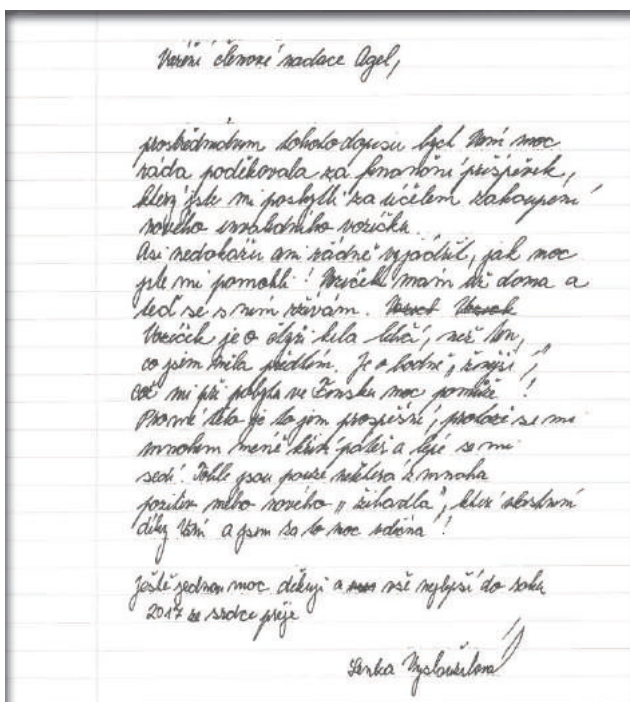 Vážení členové nadace Agel,
prostřednictvím tohoto dopisu bych Vám moc
ráda poděkovala za finanční příspěvek,
který jste mi poskytli za účelem zakoupení
nového invalidního vozíčku.
Asi nedokážu ani řádně vyjádřit, jak moc
jste mi pomohli! Vozíček mám už doma a
teď se s ním sžívám.
Vozíček je o čtyři kila lehčí, než ten,
co jsem měla předtím. Je o hodně „užší",
což mi při pobytu ve Finsku moc pomůže!
Pro mé tělo je to jen prospěšné, protože se mi
mnohem méně křiví páteř a lépe se mi
sedí! Tohle jsou pouze některá z mnoha
pozitiv mého nového „žihadla", které vlastním
díky Vám a jsem za to moc vděčná!
Ještě jednou moc děkuji a vše nejlepší do roku
2017 ze srdce přeje
Lenka